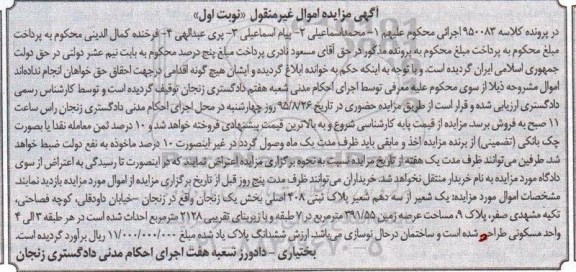 آگهی مزایده اموال غیرمنقول «نوبت اول»
در پرونده کلاسه ۹۵۰۰۸۳ اجرائی محکوم علیهم ۱- محمداسماعیلی ۲- پیام اسماعیلی ۳- پری عبدالهی ۴- فرخنده کمال الدینی محکوم به پرداخت
مبلغ محکوم به پرداخت مبلغ محکوم به پرونده مذکور در حق آقای مسعود نادری پرداخت مبلغ پنج درصد محکوم به بابت نیم عشر دولتی در حق دولت
جمهوری اسلامی ایران گردیده است. و با توجه به اینکه حکم به خوانده ابلاغ گردیده و ایشان هیچ گونه اقدامی درجهت احقاق حق خواهان انجام نداده‌اند
اموال مشروحه ذیلا از سوی محکوم علیه معرفی توسط اجرای احکام مدنی شعبه هفتم دادگستری زنجان توقیف گردیده است و توسط کارشناس رسمی
دادگستری ارزیابی شده و قرار است از طریق مزایده حضوری در تاریخ ۹۵/۸/۲۶ روز چهارشنبه در محل اجرای احکام مدنی دادگستری زنجان راس ساعت
۱۱ صبح به فروش برسد مزایده از قیمت پایه کارشناسی شروع و به بالاترین قیمت پیشنهادی فروخته خواهد شد و ۱۰ درصد ثمن معامله نقدا یا بصورت
چک بانکی (تضمینی) از برنده مزایده اخذ و مابقی باید ظرف مدت یک ماه وصول گردد در غیر اینصورت ۱۰ درصد ماخوذه به نفع دولت ضبط خواهد
شد. طرفین می‌توانند ظرف مدت یک هفته از تاریخ مزایده نسبت به نحوه برگزاری مزایده اعتراض نمایند که در اینصورت تا رسیدگی به اعتراض از سوی
دادگاه مورد مزایده به نام خریدار منتقل نخواهد شد. خریداران می‌توانند ظرف مدت پنج روز قبل از تاریخ برگزاری مزایده از اموال مورد مزایده بازدید نمایند.
مشخصات اموال مورد مزایده: یک شعیر از سه دهم شعیر پلاک ثبتی ۴۰۸ اصلی بخش یک زنجان واقع در زنجان -خیابان داودقلی، کوچه فصاحتی،
تکیه مشهدی صفر، پلاک ۹، مساحت عرصه زمین ۳۹۱/۵۵ مترمربع در ۷ طبقه و با زیربنای تقریبی ۲۱۲۸ مترمربع احداث شده است در هر طبقه ۳ الی ۴
واحد مسکونی طراحی شده است و ساختمان درحال نوسازی می‌باشد. ارزش ششدانگ پلاک یاد شده مبلغ ۱۱/۰۰۰/۰۰۰/۰۰۰ ریال برآورد گردیده است.
بختیاری - دادورز شعبه هفت اجرای احکام مدنی دادگستری زنجان